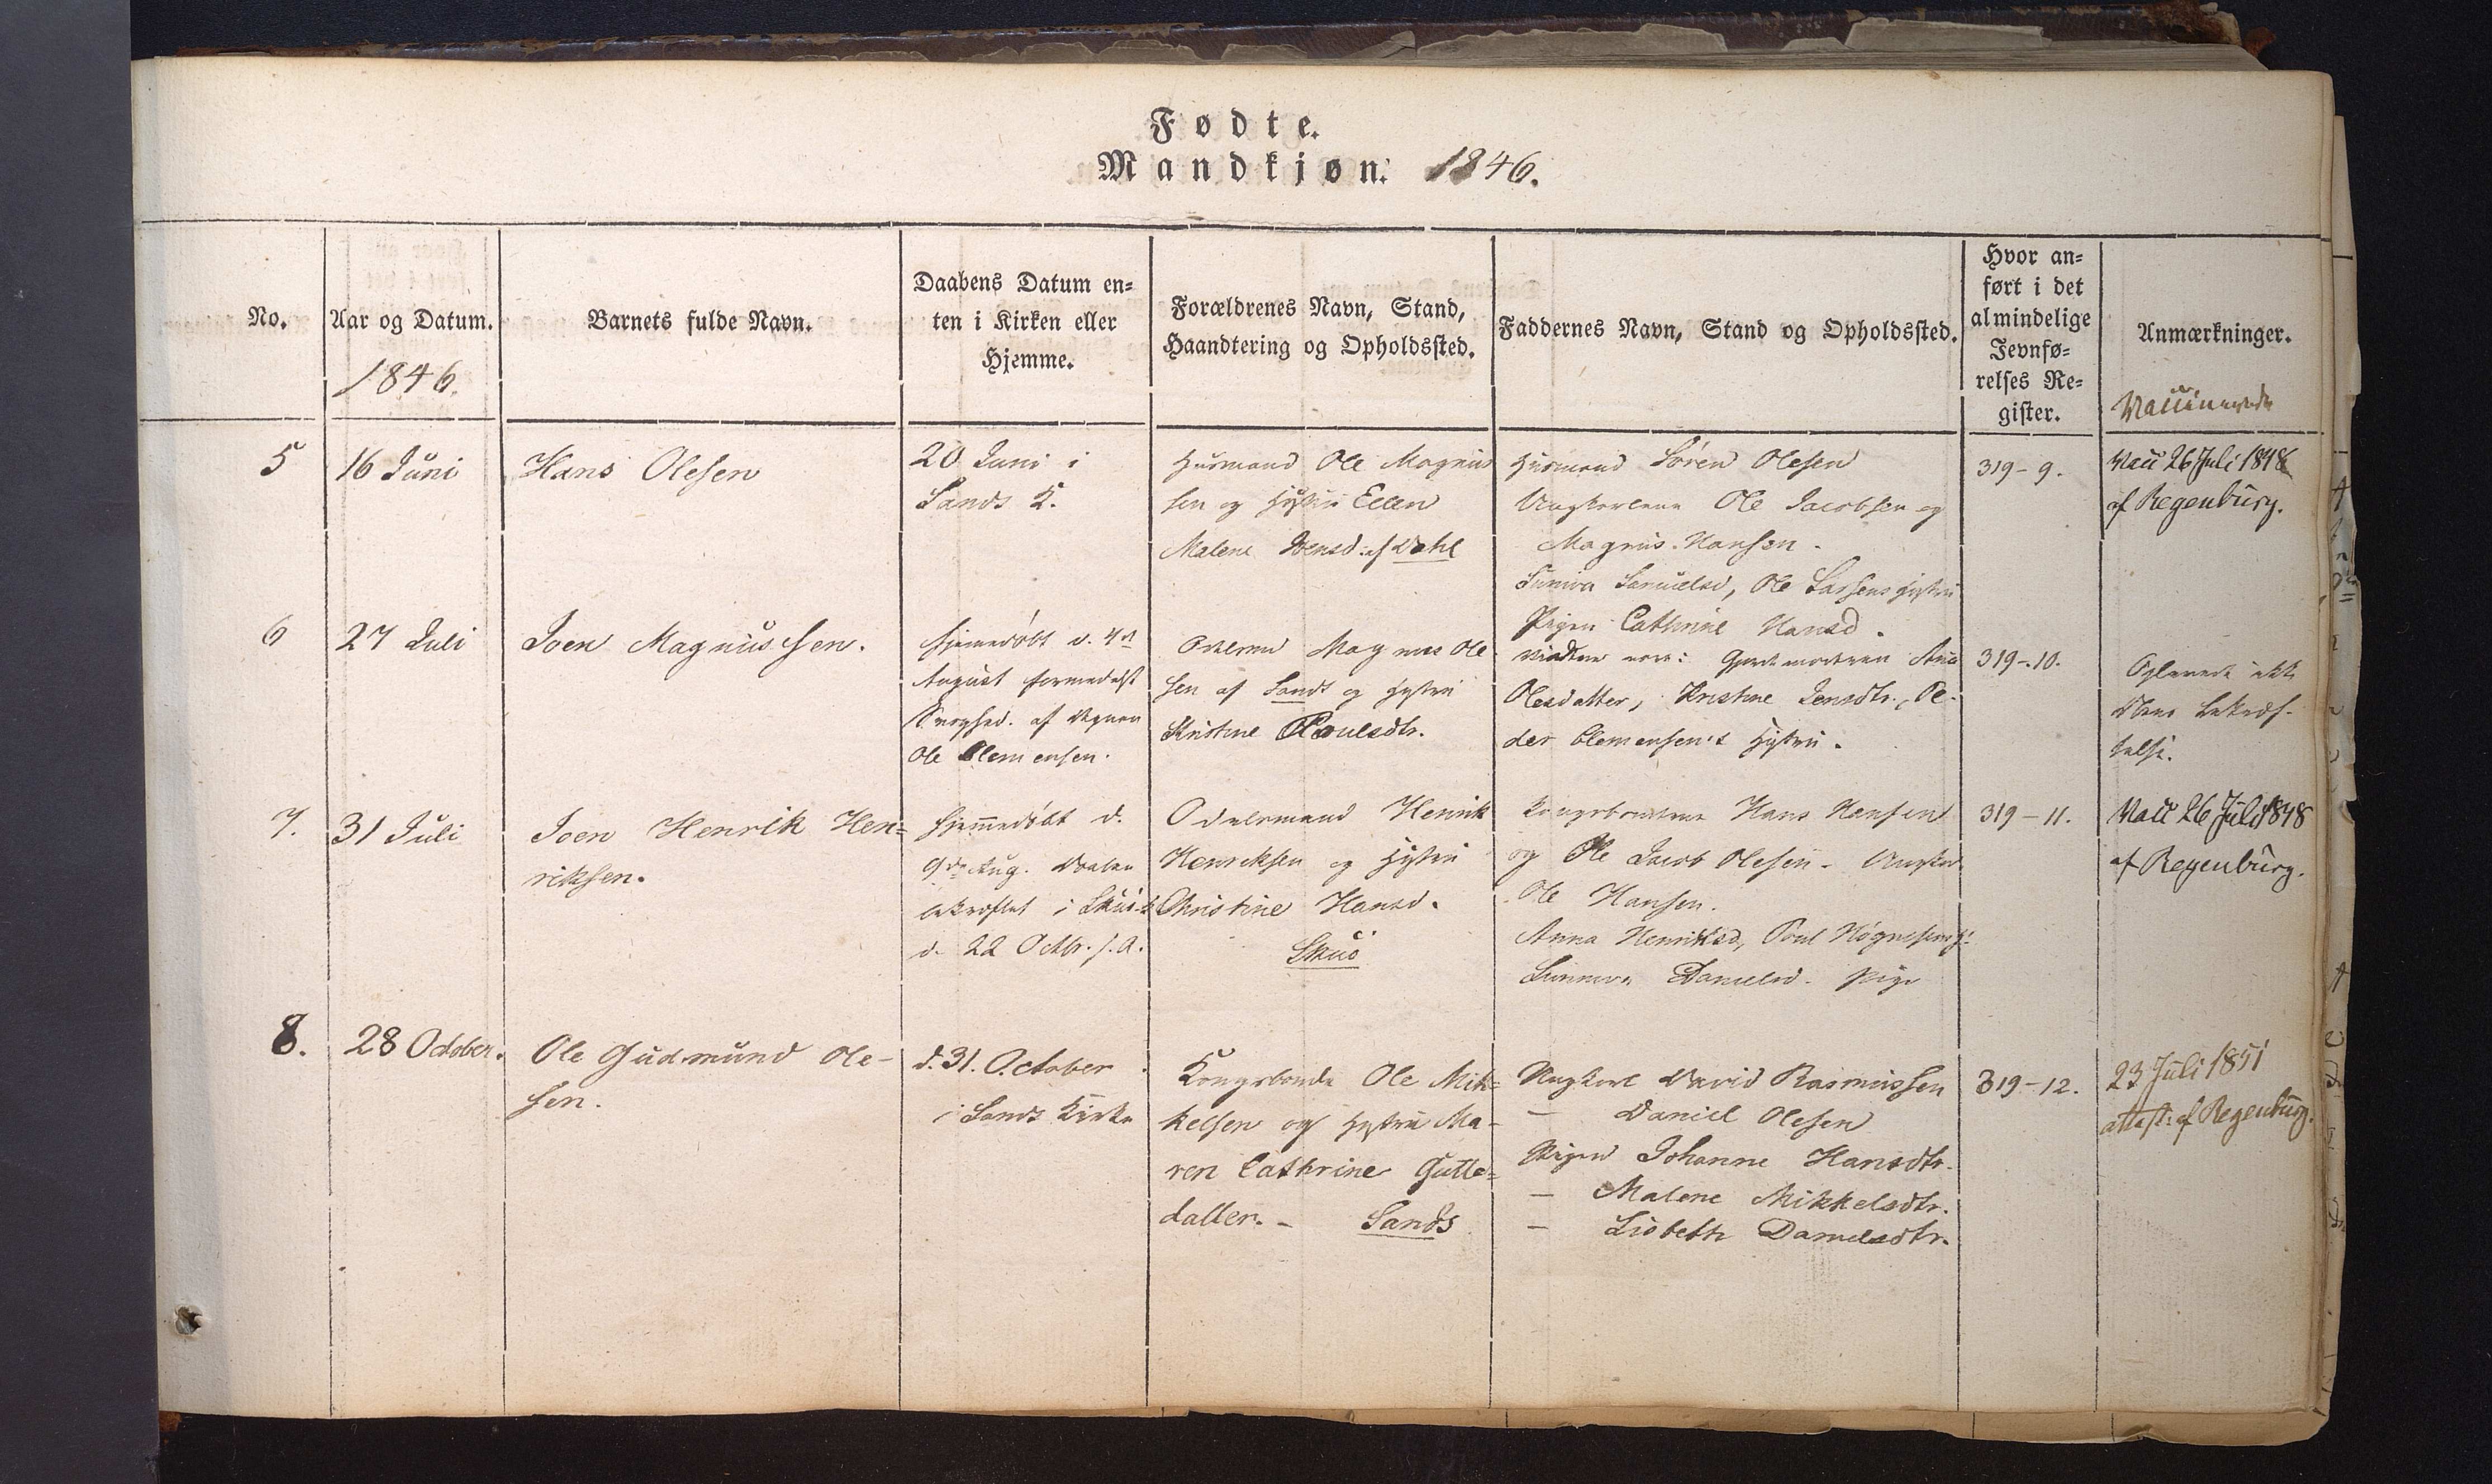 Fødte.
Mandkjøn. 1846.
No.
Aar og Datum.
1846.
Barnets fulde Navn.
Daabens Datum en=
ten i Kirken eller
Hjemme.
Forældrenes Navn, Stand,
Haandtering og Opholdssted.
Faddernes Navn, Stand og Opholdssted.
Hvor an=
ført i det
almindelige
Jevnfø=
relses Re=
gister.
Anmærkninger.
5
16 Juni
Hans Olesen
20 Juni i
Sands K.
Husmand Ole Magnus
sen og Hustru Ellen
Malene Joensd. af Dahl
Husmand Søren Olesen
Ungkarlene Ole Jacobsen og
Magnus Hansen.
Sunniva Samuelsd, Ole Larsens Hustru
Pigen Cathrine Hansd.
319-9.
Vacc 26 Juli 1848
af Regenburg.
6
27 Juli
Joen Magnussen.
Hjemmedøbt d. 4de
August formedelst
Svaghed. af Degnen
Ole Clemensen.
Odelsmd Magnus Ole
sen af Sand og Hustru
Kristine Poulsdtr.
Vidner vare: Gjordemoderen Ana
Olesdatter, Kristine Jensdtr., Pe-
der Clemensen's Hustru.
319-10.
Oplevede ikke
Daabens Bekræf-
telse.
7.
31 Juli
Joen Henrik Hen=
riksen.
Hjemmedøbt d.
9de Aug. Daaben
bekræftet i Skuø K
d. 22 Octbr. s. A.
Odelsmand Henrik
Henriksen og Hustru
Christine Hansd.
Skuø
Kongsbønderne Hans Hansen
og Ole Jacob Olesen - Ungkarl
Ole Hansen.
Anna Henriksd, Poul Høgnesens H.
Sunneva Danielsd. Pige
319-11.
Vacc 26 Juli 1848
af Regenburg.
8.
28 October.
Ole Gudmund Ole-
sen.
d. 31. October
i Sands Kirke
Kongsbonde Ole Mik=
kelsen og Hustru Ma-
ren Cathrine Gutte=
datter. - Sands
Ungkarl David Rasmussen
- Daniel Olesen
Pigen Johanne Hansdtr.
- Malene Mikkelsdtr.
- Lisbeth Danielsdtr.
319-12.
23 Juli 1851
attest: af Regenburg.